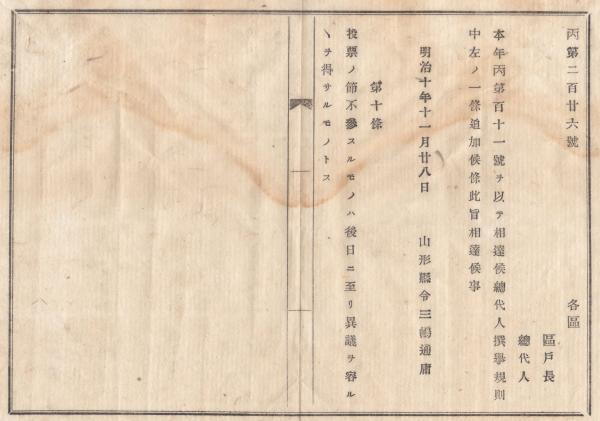 丙第二百廿六號
各區
區戸長
總代人
本年丙第百十一號ヲ以テ相達候總代人撰擧規則
中左ノ一條追加候條此旨相達候事
明治十年十一月廿八日 山形縣令三嶋通庸
第十條
投票ノ節不參スルモノハ後日ニ至リ異議ヲ容ル
ヽヲ得サルモノトス